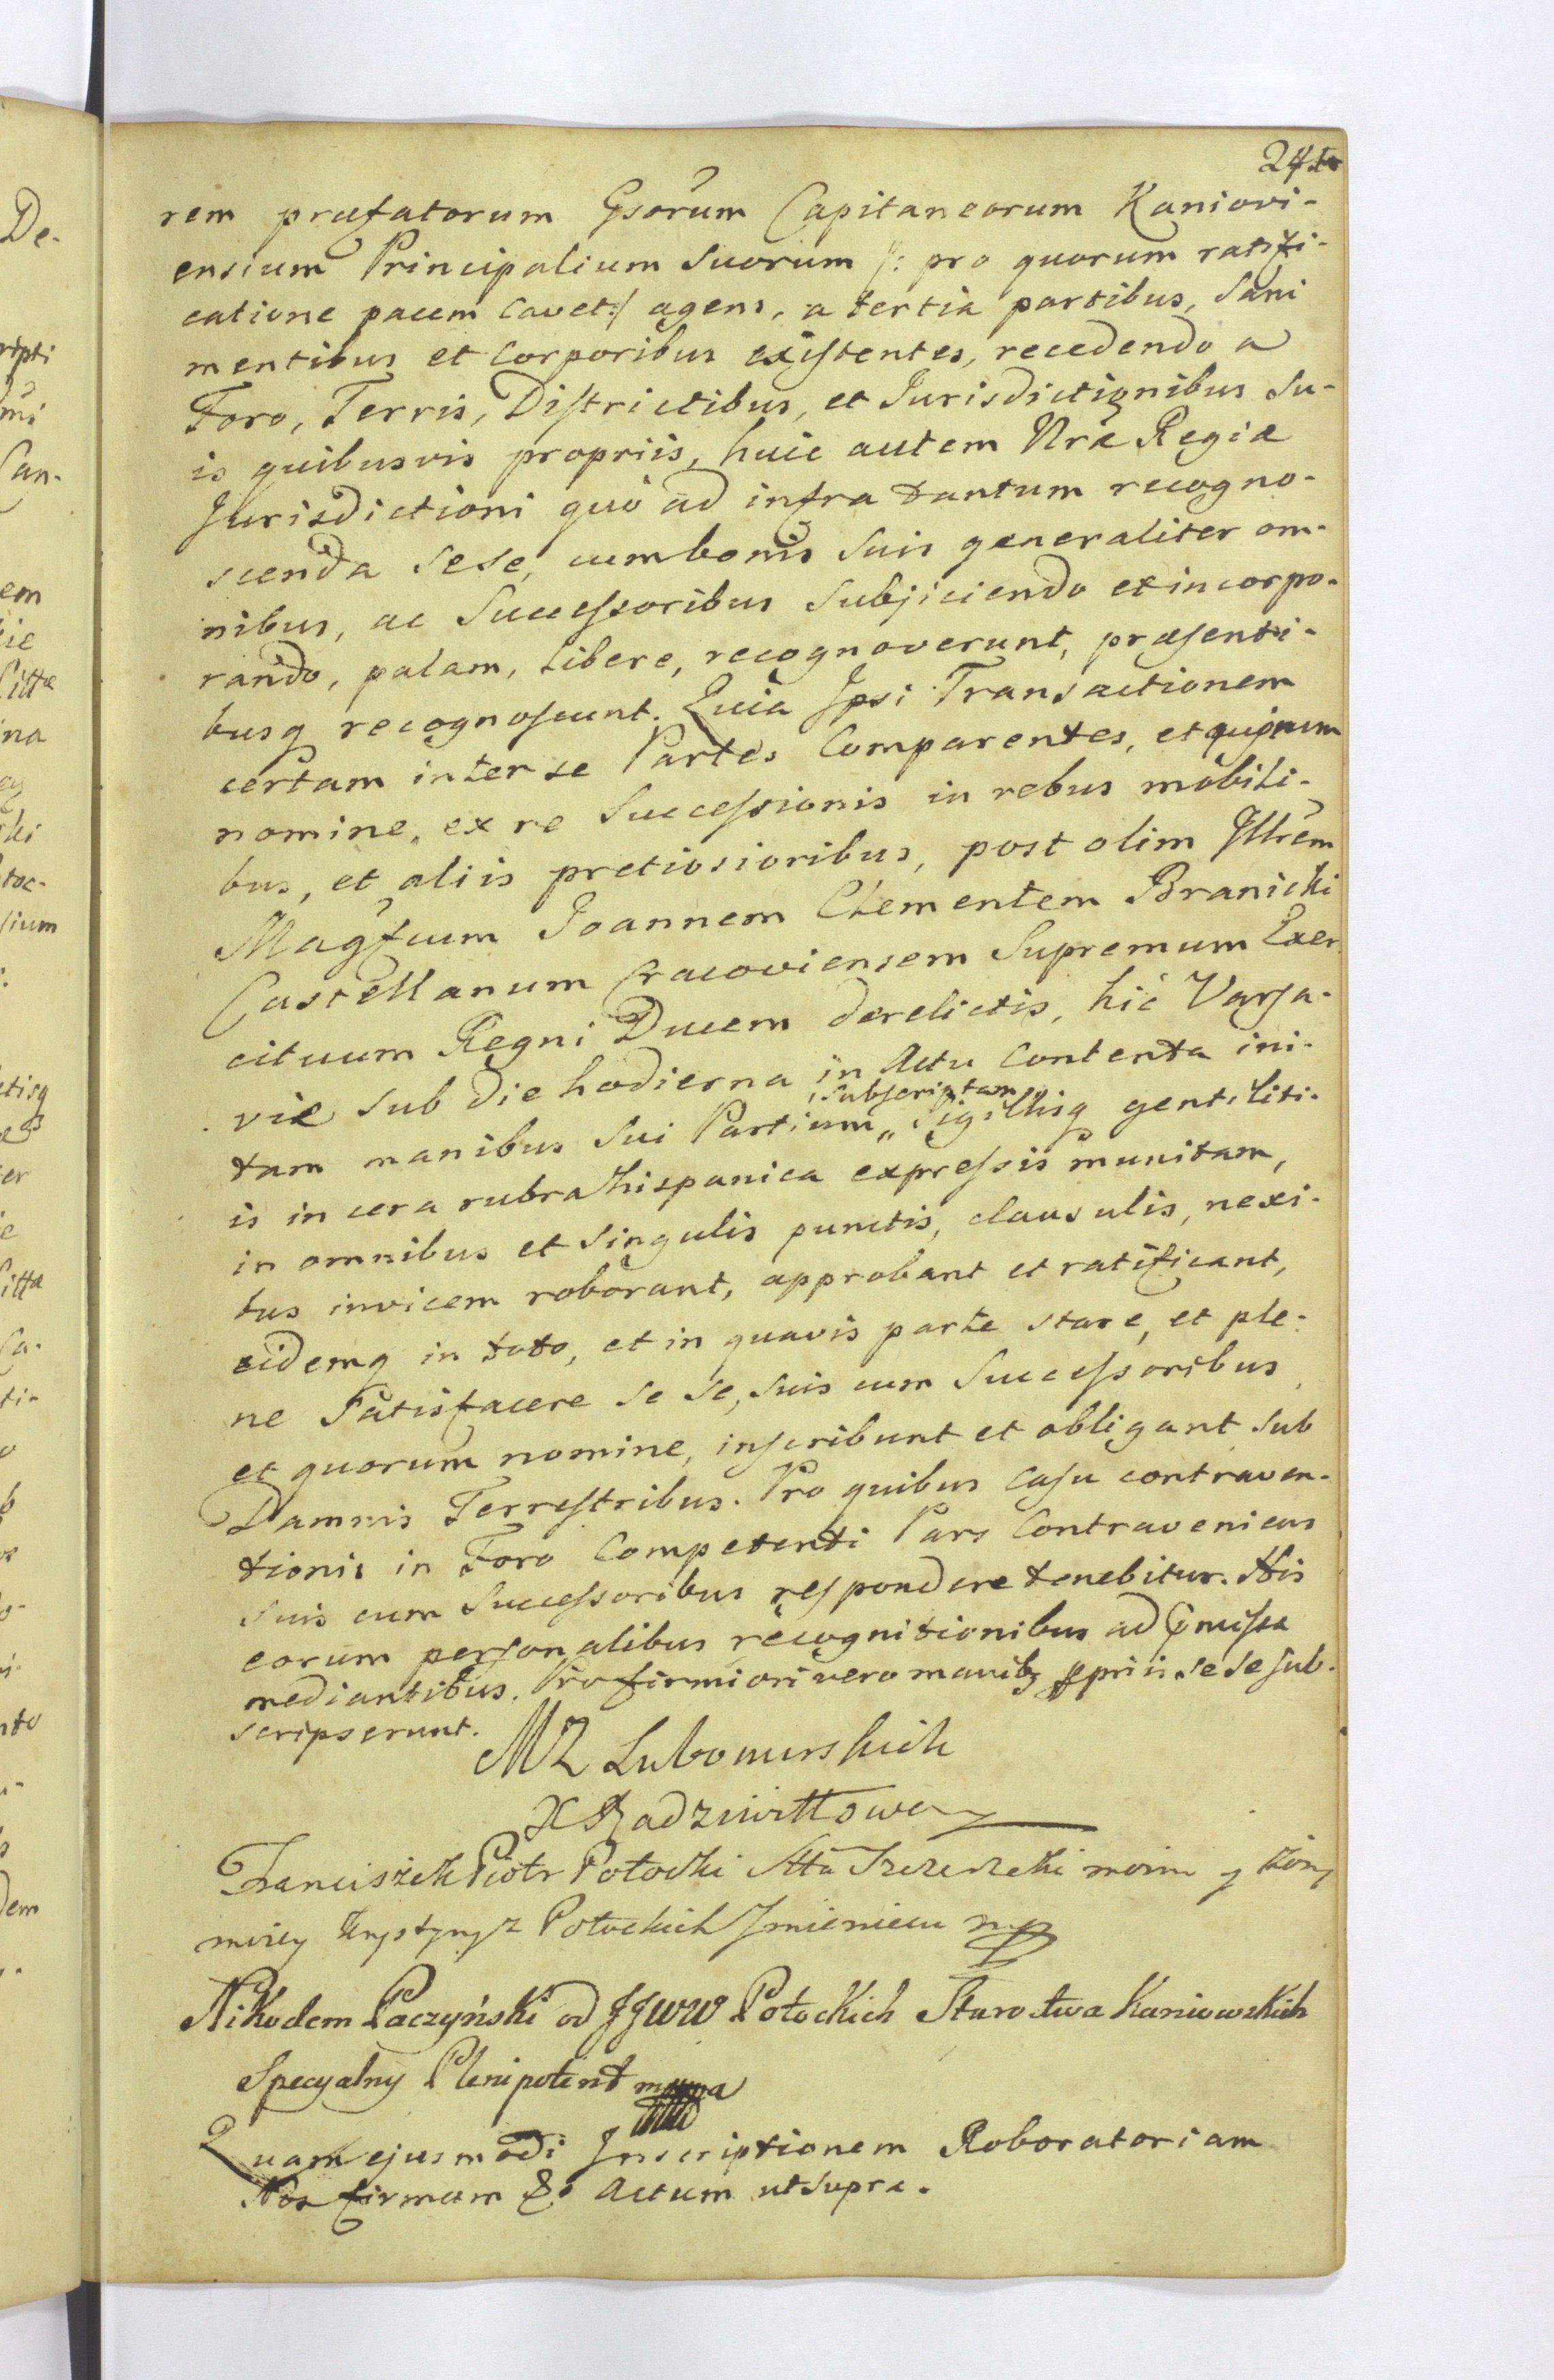 rem præfatorum Gsorum Capitaneorum Kaniovi-
ensium Principalium Suorum /: pro quorum ratifi-
catione pacem cavet:/ agens, a tertia partibus, Sani
mentibus et Corporibus existentes, recedendo a
Foro, Terris, Districtibus, et Jurisdictionibus Su-
is quibusvis propriis, huic autem Nræ Regiæ
Jurisdictioni quo ad infra tantum recogno-
scenda Sese, cum bonis Suis generaliter om-
nibus, ac Successoribus Subjiciendo et incorpo-
rando, palam, libere, recognoverunt, præsenti-
busq recognoscunt. Quia Ipsi Transactionem
certam inter se Partes Comparentes, et quorum
nomine, ex re Successionis in rebus mobili-
bus, et aliis pretiosioribus, post olim Illrem
Magfcum Joannem Clementem Branicki
Castellanum Cracoviensem Supremum Exer
cituum Regni Ducem derelictis, hic Varsa-
viæ Sub die hodierna in Actu Contenta ini-
tam manibus Sui Partium „ Subscriptam Sigillisq gentiliti-
is in cera rubra hispanica expressis munitam,
in omnibus et Singulis punctis, clausulis, nexi-
bus invicem roborant, approbant et ratificant,
eidemq in toto, et in quavis parte stare, et ple-
ne Satisfacere Se Se, Suis cum Successoribus,
et quorum nomine, inscribunt et obligant Sub
Damnis Terrestribus. Pro quibus Casu contraven-
tionis in Foro Competenti Pars Contraveniens
Suis cum Successoribus respondere tenebitur. His
eorum personalibus recognitionibus ad pmissa
mediantibus. Pro firmiori vero manibz ppriis se se sub-
scripserunt.
MZ Lubomirskich
X Radziwiłłowa
Franciszek Piotr Potocki Stta Szczerzecki moim y żony
moiey Krystyny z Potockich Jmieniem mp
Nikodem Paczyński od JJWW Potockich Starostwa Kaniowskich
Specyalny Plenipotent
Quam ejusmodi Inscriptionem Roboratoriam
Nos firmam &. Actum ut Supra.